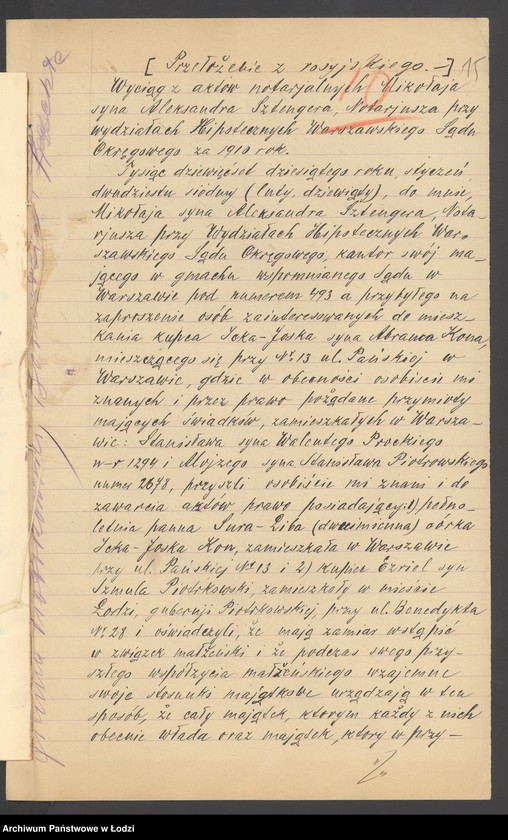 [Przełożenie z rosyjskiego.—] 15
10
Wyciąg z aktów notarjalnych Mikołaja
syna Aleksandra Sztengera, Notarjusza przy
wydziałach Hipotecznych Warszawskiego Sądu
Okręgowego za 1910 rok.
Tysiąc dziewięset dziesiątego roku, styczeń
dwudziestu siódmy (luty, dziewiąty), do mnie,
Mikołaja syna Aleksandra Sztengera, Nota-
rjusza przy Wydziałach Hipotecznych War-
szawskiego Sądu Okręgowego, kantor swój ma-
jącego w gmachu wspomnianego Sądu w
Warszawie pod numerem 493 a przybyłego na
zaproszenie osób zainteresowanych do miesz-
kania kupca Icka-Joska syna Abrama Kona,
mieszczącego się przy № 13 ul. Pańskiej w
Warszawie, gdzie w obecności osobiście mi
znanych i przez prawo pożądane przymioty
mających świadków, zamieszkałych w Warsza-
wie: Stanisława syna Walentego Prockiego
n-r 1294 i Alojzego syna Stanisława Piotrowskiego
numer 2678, przyszli osobiście mi znani i do
zawarcia aktów prawo posiadający: 1) pełno-
letnia panna Sura-Liba (dwuimienna) córka
Icka-Joska Kon, zamieszkała w Warszawie
przy ul. Pańskiej № 13 i 2) kupiec Ezriel syn
Szmula Piotrkowski, zamieszkały w mieście
Łodzi, gubernji Piotrkowskiej, przy ul. Benedykta
№ 28 i oświadczyli, że mają zamiar wstąpić
w związek małżeński i że podczas swego przy-
szłego współżycia małżeńskiego wzajemne
swoje stosunki majątkowe urządzają w ten
sposób, że cały majątek, którym każdy z nich
obecnie włada oraz majątek, który w przy-
Archiwum Państwowe w Łodzi